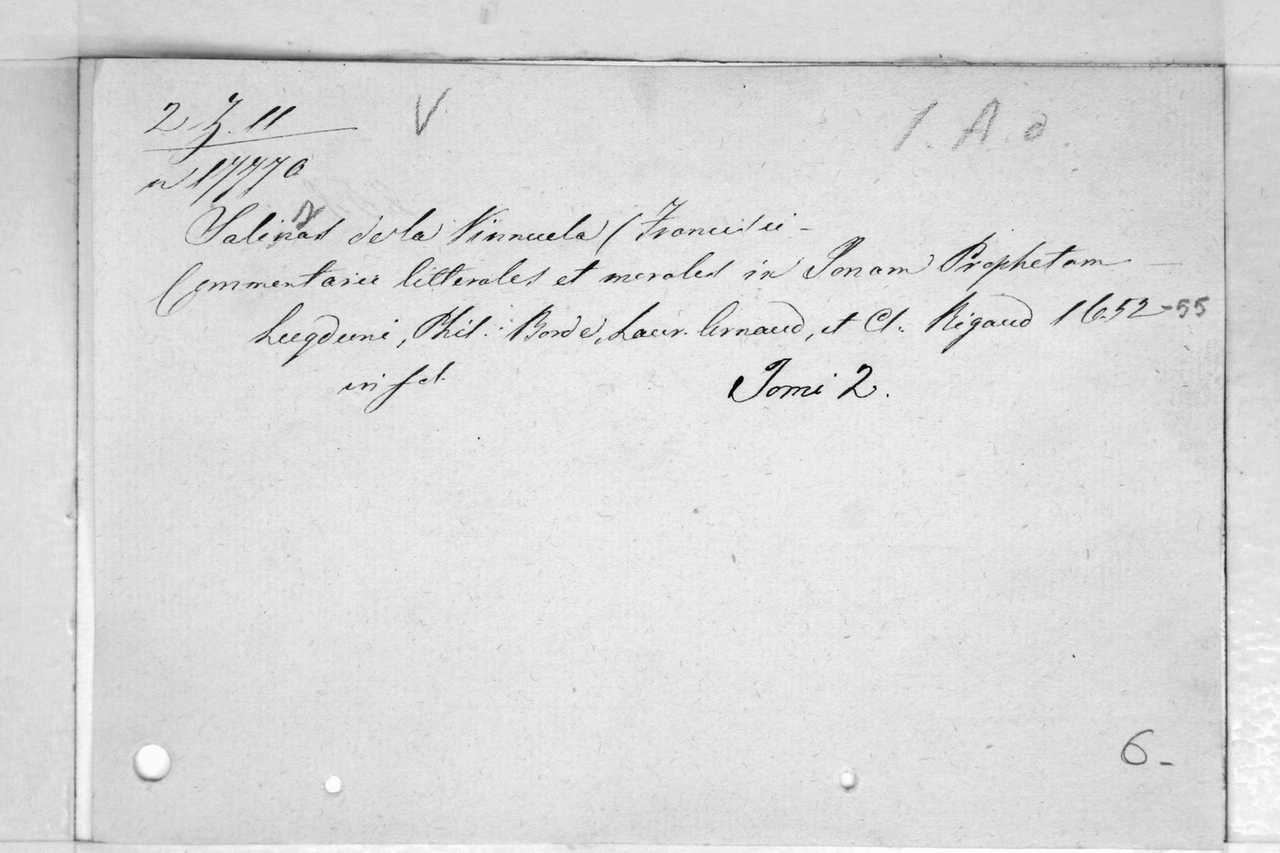 2. Z. 11 V 1. A. d.
n 17770
Salinas de la Vinnuela (Francisci -
Commentarii litterales et morales in Jonam Prophetam
Lugduni, Phil. Borde, Laur. Arnaud, et Cl. Rigaud 1652-55
in fol. Tomi 2.
6-